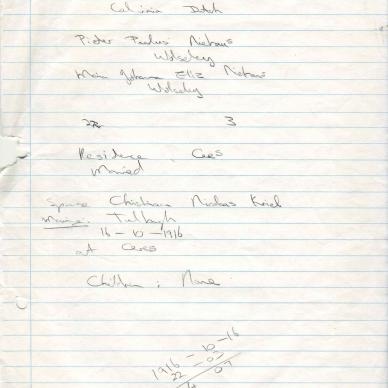 Calvinia Dutch
Pieter Paulus Niehaus
Wolseley
Maria Johanna Eliz Niehaus
Wolseley
3
Residence Ceres
Married
Spouse Christiaan Nicolaas Kriel
Tulbagh
16-10-1916
at Ceres
Children: None
1916-10-16
22